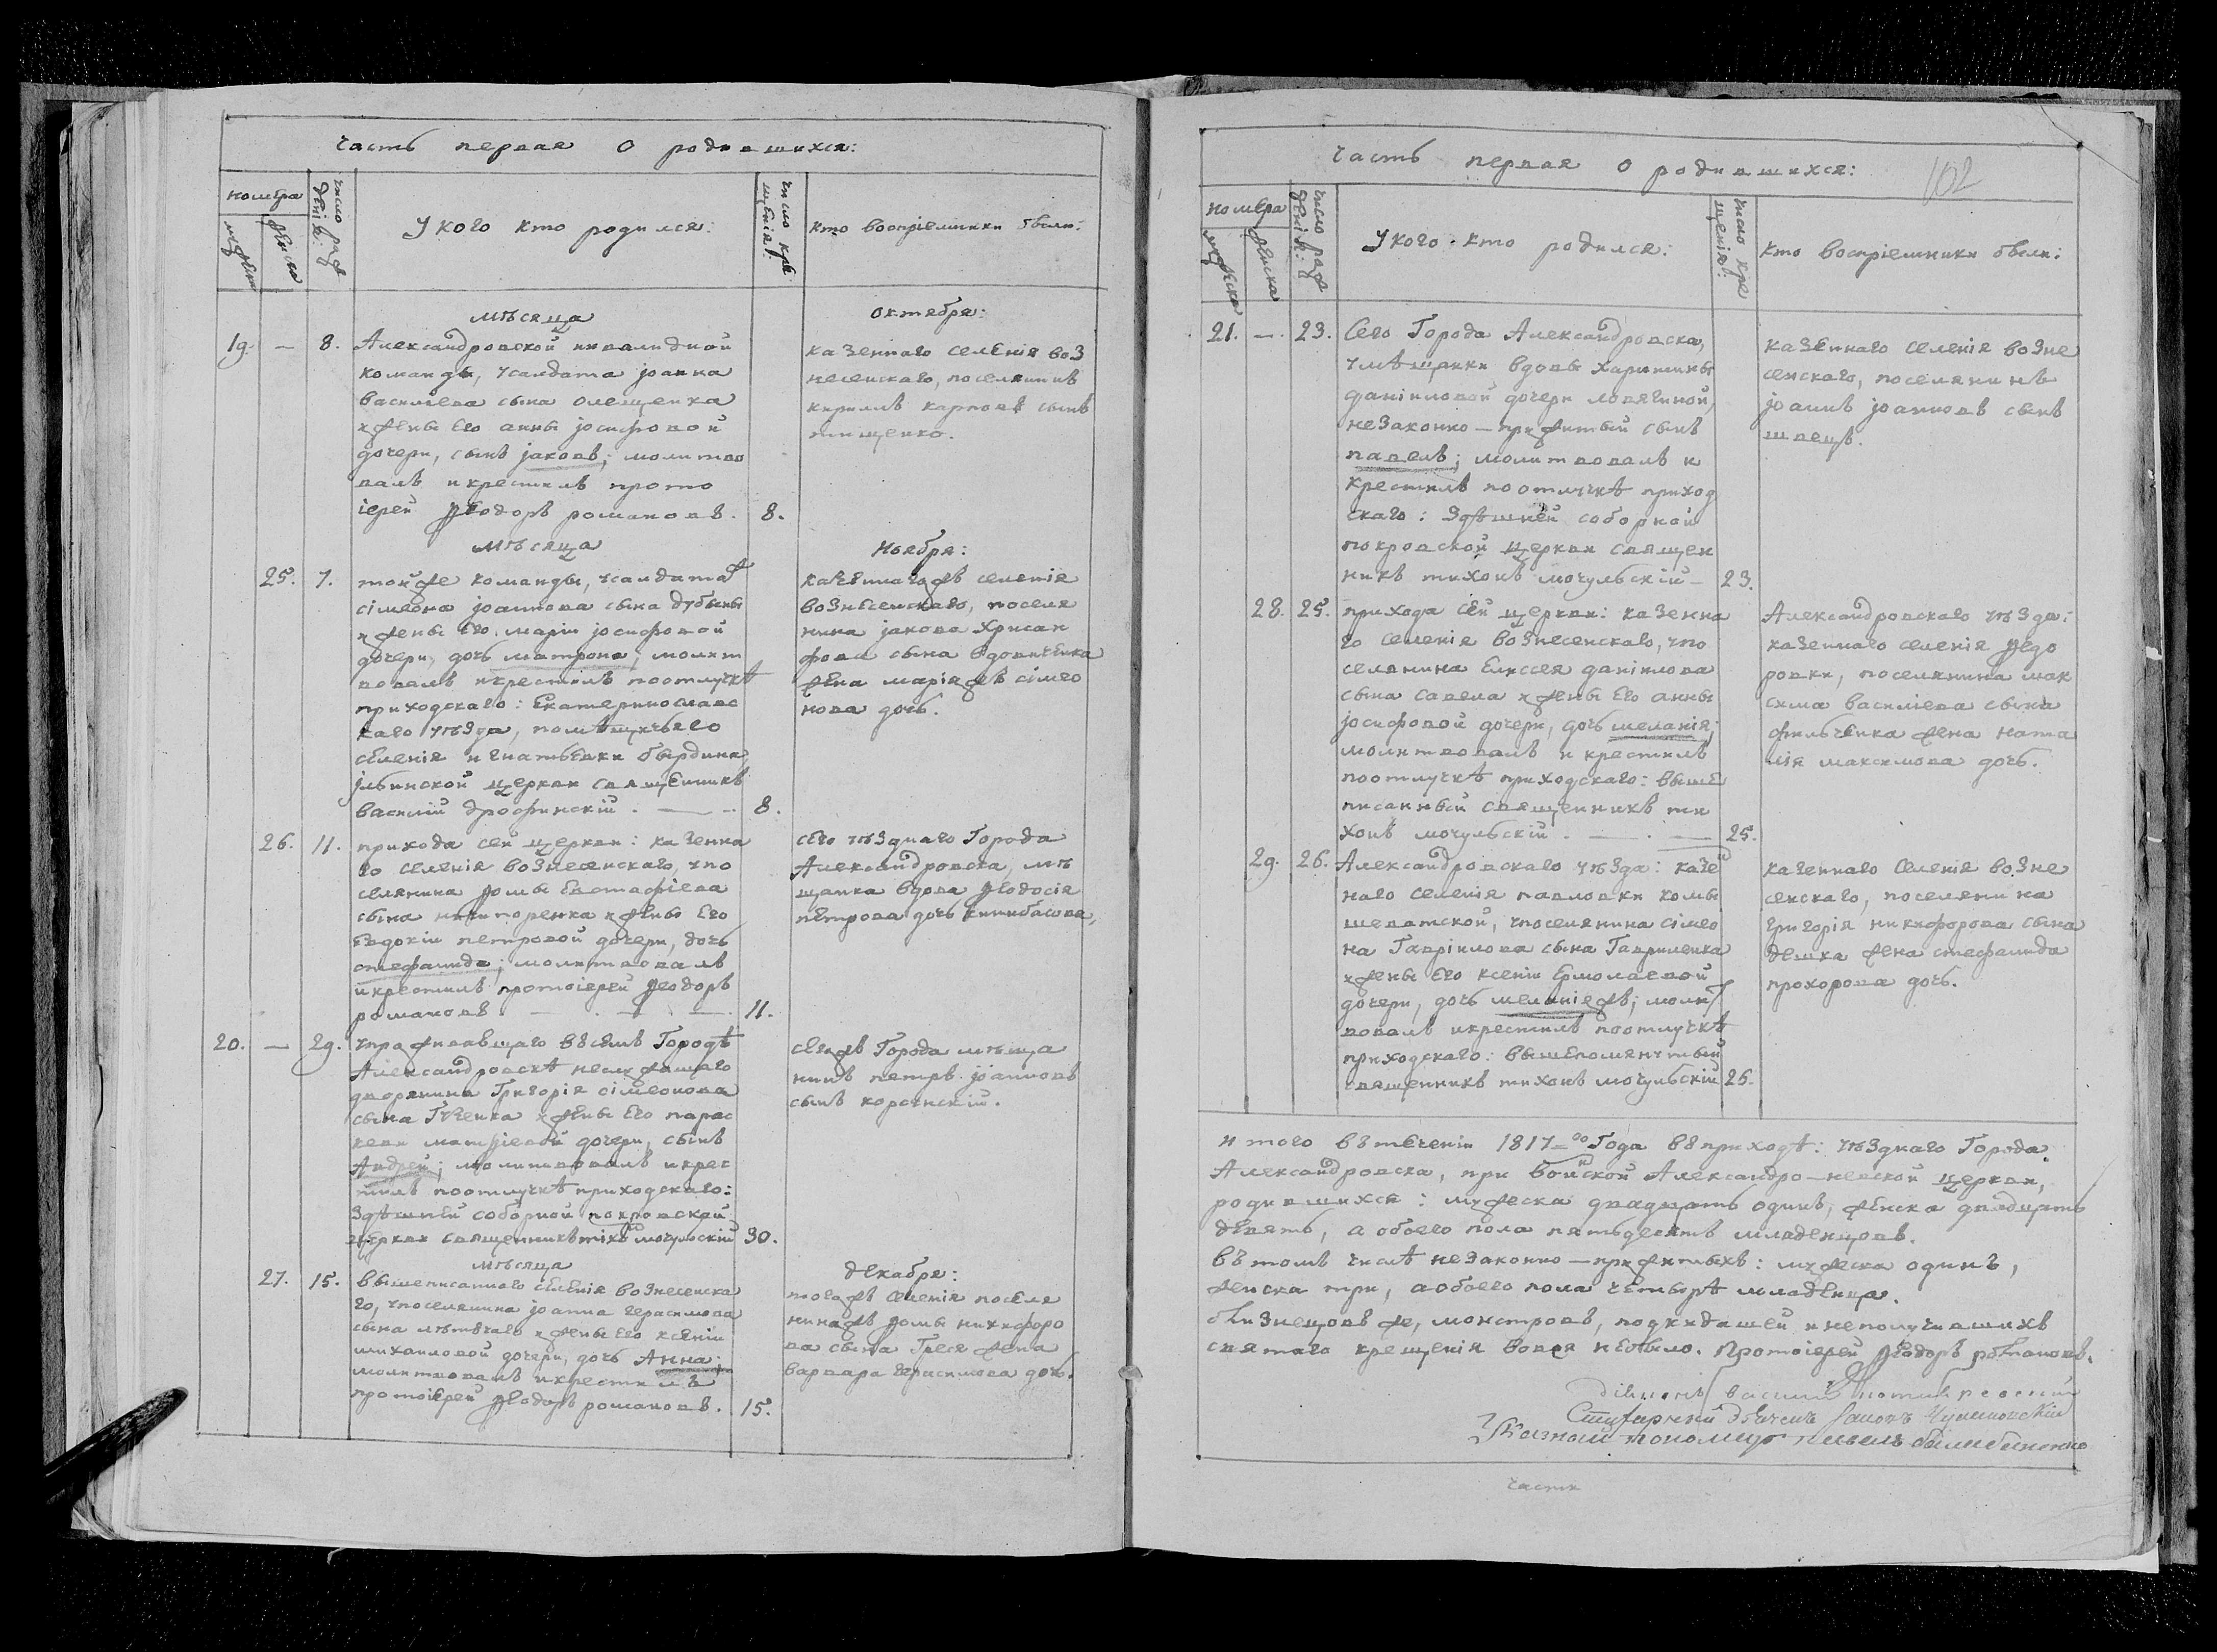 Часть первая о родившихся:
номѣра
число рож
денія:
У кого кто родился:
число кре
щенія:
кто воспріемники были:
мужеска
женска
мѣсяца
октября:
19. — 8. Александровской инвалидной
команды, усалдата іоанна
василіева сына олещенка
и жены его анны іосифовой
дочери, сынъ іаковъ; молитво
валъ и крестилъ прото
іерей Ѳеодоръ романовъ. 8.
казеннаго селенія воз
несенскаго, поселянинъ
кирилъ карповъ сынъ
тищенко.
мѣсяца
Ноября:
25. 7. тойже команды, усалдата
сімеона іоаннова сына дубины
и жены его маріи іосифовой
дочери, дочь матрона; молит
вовалъ и крестилъ поотлучкѣ
приходскаго: Екатеринослав
каго уѣзда, помѣщичьяго
селенія игнатьевки
ильинской церкви священникъ
василій дрофинскій. — 8.
казеннагожъ селенія
вознесенскаго, поселя
нина іакова хрисан
фова сына вдовиченка
жена маріяжъ сімео
нова дочь.
26. 11. прихода сей церкви: казенна
го селенія вознесенскаго, упо
селянина Ѳомы Евстафіева
сына никипоренка и жены его
Евдокіи петровой дочери, дочь
стефанида; молитвовалъ
и крестилъ протоіерей Ѳеодоръ
романовъ — 11.
сего уѣзднаго Города
Александровска, мѣ
щанка вдова Ѳеодосія
петрова дочь
20. — 29. упроживавшаго въ семъ Городѣ
Александровскѣ неслужащаго
дворянина Григорія сімеонова
сына Гученка и жены его парас
кеви матфіевой дочери, сынъ
Андрей; молитвовалъ и крес
тилъ поотлучкѣ приходскаго:
здѣшней соборной покровской
церкви священникъ тихонъ мочульскій 30.
сегожъ Города мѣща
нинъ петръ іоанновъ
сынъ корсунскій.
мѣсяца
декабря:
27. 15. вышеписаннаго селенія вознесенска
го, упоселянина іоанна герасимова
сына и жены его ксеніи
михаиловой дочери, дочь Анна;
молитвовалъ и крестилъ
протоіерей Ѳеодоръ романовъ. 15.
тогожъ селенія поселя
нинажъ Ѳомы никифоро
ва сына Греся жена
варвара герасимова дочь.
Часть первая о родившихся:
102
номѣра
число рож
денія:
У кого кто родился:
число кре
щенія:
кто воспріемники были:
мужеска
женска
21. — 23. Сего Города Александровска,
умѣщанки вдовы харитины
даніиловой дочери ловягиной,
незаконно — прижитый сынъ
павелъ; молитвовалъ и
крестилъ поотлучкѣ приход
скаго: здѣшней соборной
покровской церкви священ
никъ тихонъ мочульскій — 23.
казеннаго селенія возне
сенскаго, поселянинъ
іоаннъ іоанновъ сынъ
швецъ.
28. 25. прихода сей церкви: казенна
го селенія вознесенскаго, упо
селянина Елиссея даніилова
сына савела и жены его анны
іосифовой дочери, дочь меланія;
молитвовалъ и крестилъ
поотлучкѣ приходскаго: выше
писанный священникъ ти
хонъ мочульскій. — 25.
Александровскаго уѣзда:
казеннаго селенія Ѳедо
ровки, поселянина мак
сима василіева сына
фильченка жена ната
лія максимова дочь.
29. 26. Александровскаго уѣзда: казен
наго селенія павловки комы
шеватской, упоселянина сімео
на Гавріилова сына Гавриленка
и жены его ксеніи Ермолаевой
дочери, дочь меланіяжъ; молит
вовалъ и крестилъ поотлучкѣ
приходскаго: вышепомянутый
священникъ тихонъ мочульскій 26.
казеннаго Селенія возне
сенскаго, поселянина
Григорія никифорова сына
дешка жена стефанида
прохорова дочь.
итого въ теченіи 1817=го Года въ приходѣ: уѣзднаго Города
Александровска, при войнской Александро-невской церкви,
родившихся: мужеска двадцать одинъ, женска двадцать
девять, а обоего пола пятьдесятъ младенцовъ.
въ томъ числѣ незаконно — прижитыхъ: мужеска одинъ,
женска три, а обоего пола четыре младенца.
близнецовъ же, монстровъ, подкидышей и неполучившихъ
святаго крещенія вовся небыло. Протоіерей Ѳеодоръ романовъ.
діаконъ василій
дьячекъ
пономарь
часть